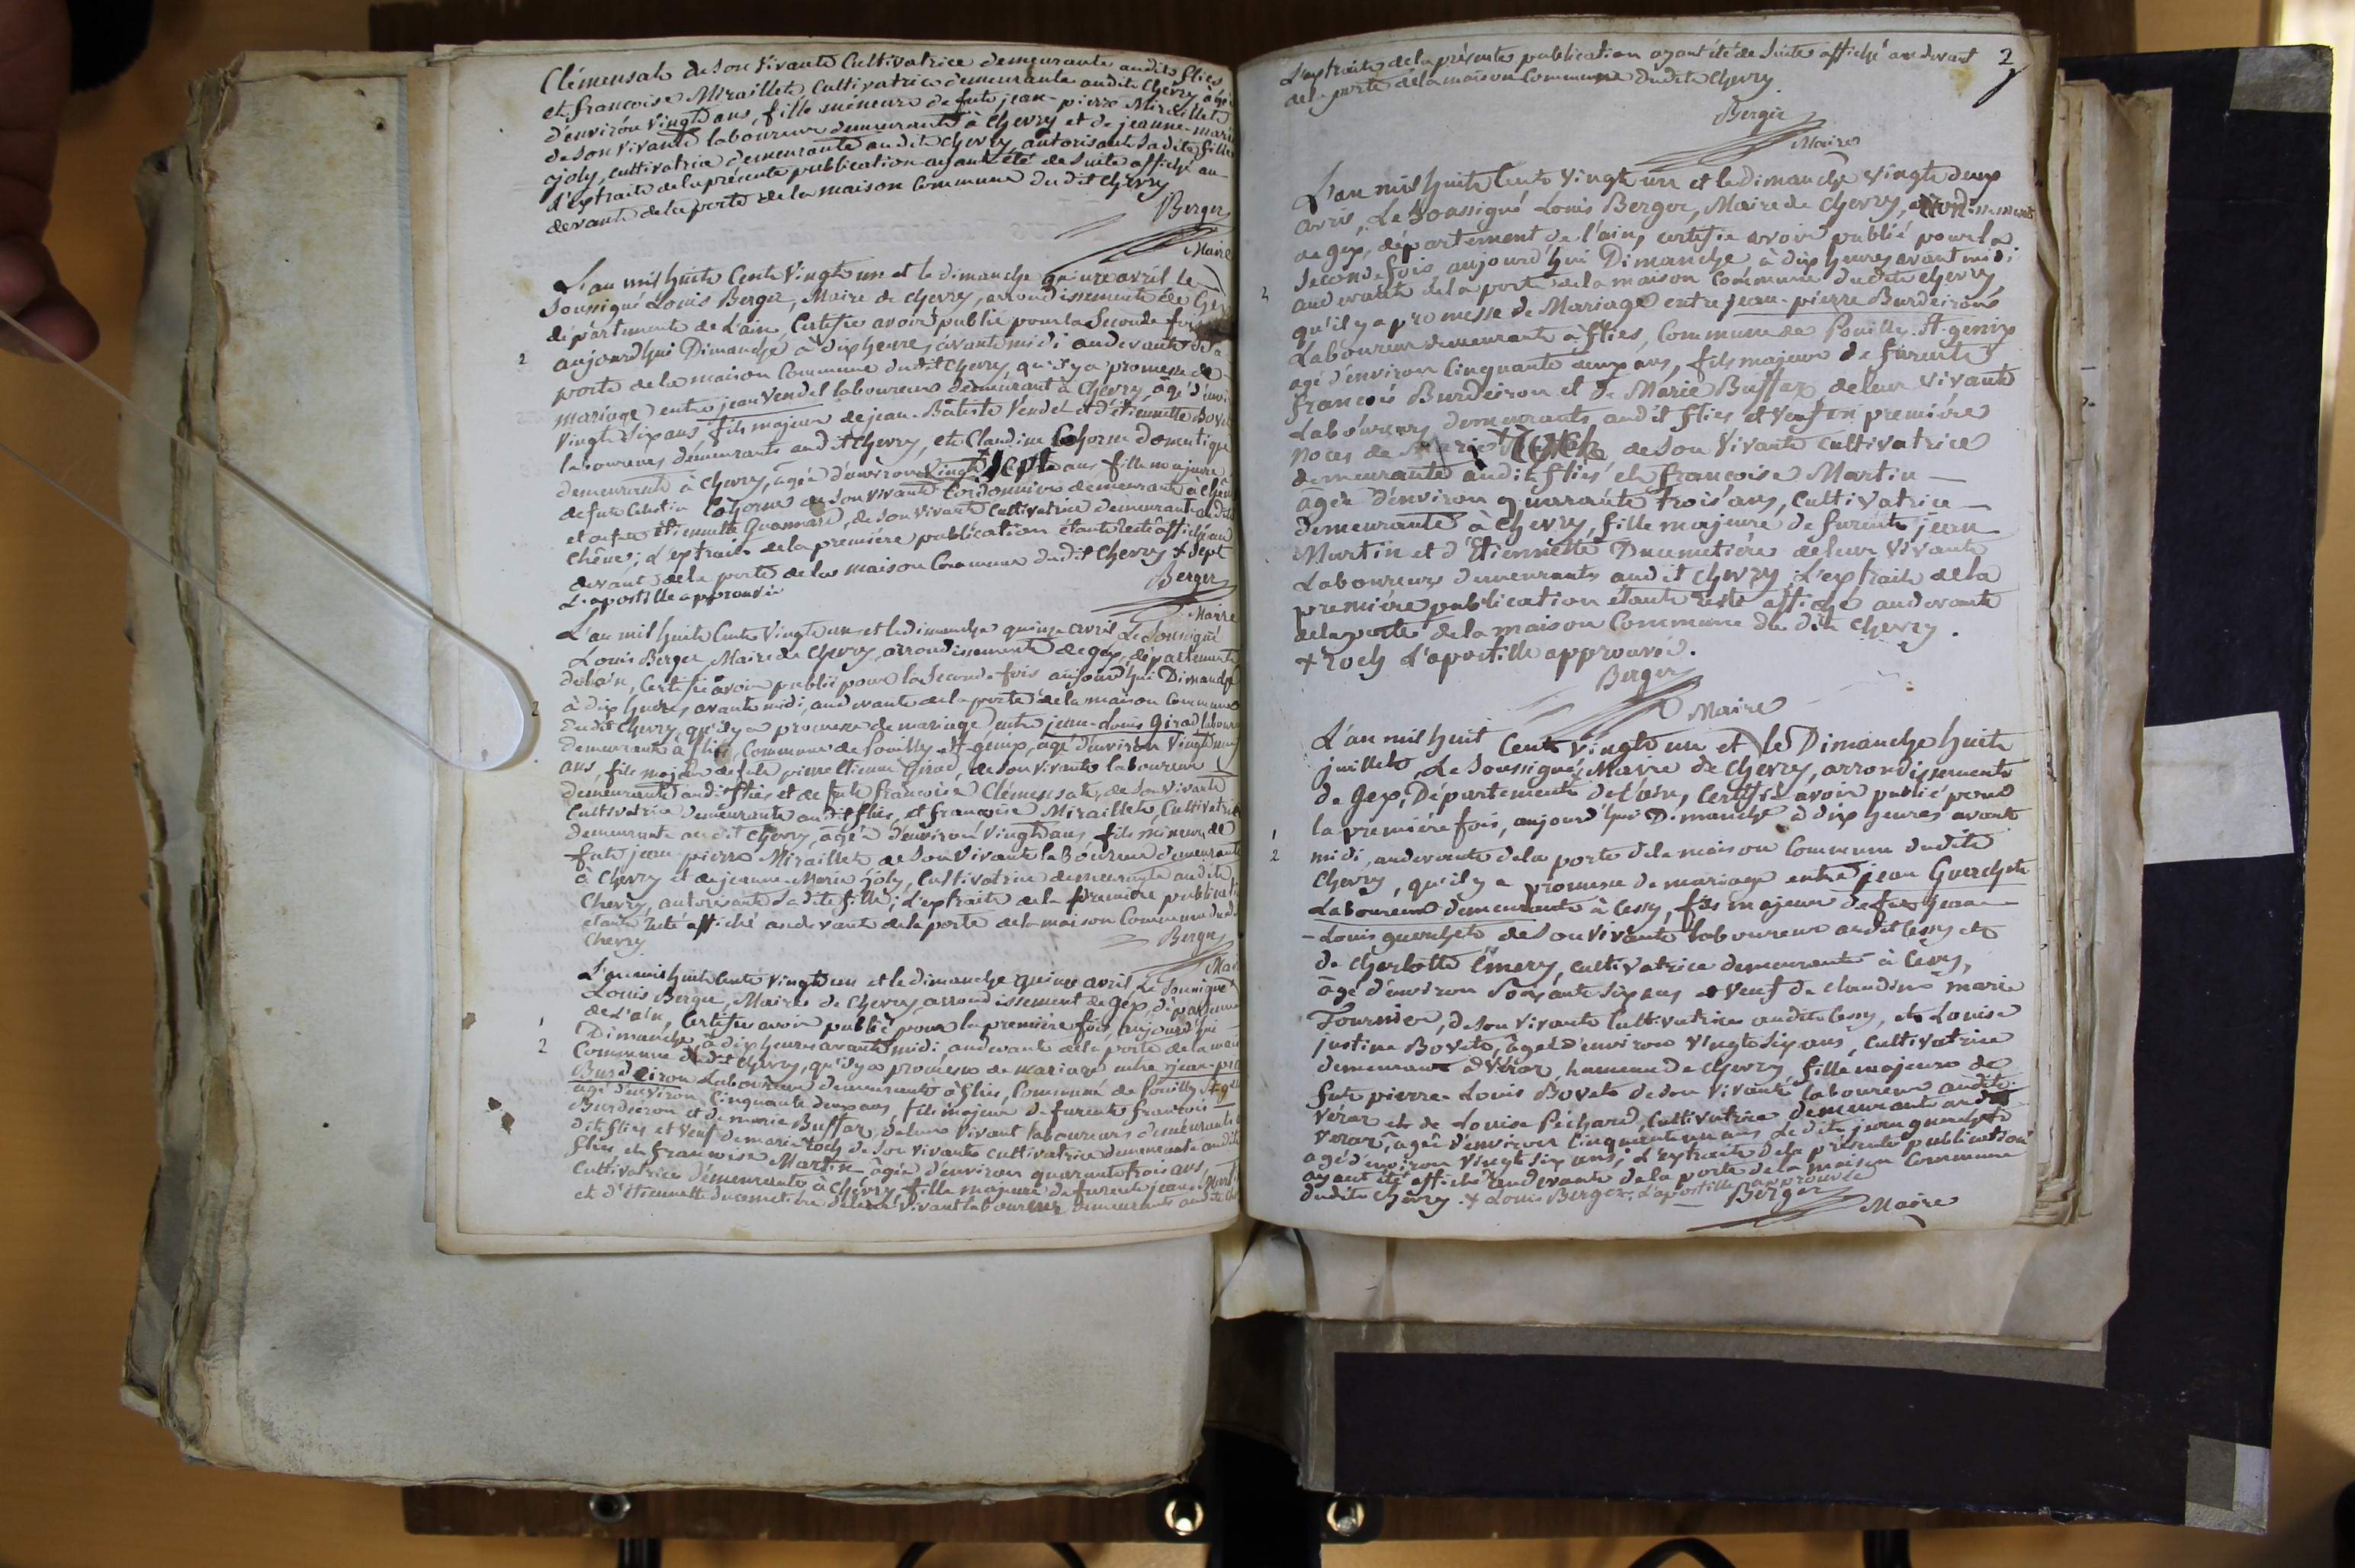 Clémensat de son vivant Cultivatrice demeurante audit flies
et francoise Miraillet Cultivatrice demeurante audit Chevry âgée
d'environ Vingt ans, fille mineure de fut jean-pierre Miraillet
de son vivant laboureur demeurant à Chevry et de jeanne-marie
joly, cultivatrice demeurante audit Chevry, autorisant sadite fille
L'extrait de la présente publication ayant été de suite affiché au
devant de la porte de la maison Commune du dit Chevry
Berger
Maire
L'an mil huit Cent Vingt un et le dimanche quinze avril le
Soussigné Louis Berger, Maire de chevry, arrondissement de Gex
département de L'ain, Certifie avoir publié pour la Seconde fois
2 aujourd'hui Dimanche à dix heures avant midi audevant de la
porte de la maison Commune dudit Chevry, qu'il y a promesse de
mariage entre jean Vendel laboureur demeurant à Chevry, âgé d'envi
Vingt six ans, fils majeur de jean-Batiste Vendel et d'étiennette Bovet
laboureurs demeurants audit Chevry, et Claudine Lahorne domestique
demeurante à Chevry, âgée d'environ Vingt + Sept ans fille majeure
de fut Lahorne de son vivant Cordonnier demeurant à Chêne
et de fue Etiennette de son vivant Cultivatrice demeurante audit
Chêne; L'extrait de la premiere publication étant resté affiché au
devant de la porte de la maison Commune dudit Chevry + Sept
L'apostille approuvée Berger
Maire
L'an mil huit Cent Vingt un et le dimanche quinze avril Le Soussigné
Louis Berger Maire de Chevry arrondissement de gex, département
de L'ain, Certifie avoir publié pour la Seconde fois aujourd'hui Dimanche
à dix heures avant midi, audevant de la porte de la maison Commune
2 dudit Chevry, qu'il y a promesse de mariage entre jean-Louis Girod laboureur
demeurant à flies, Commune de Pouilly St-genix, âgé d'environ Vingt
ans, fils majeur de fut pierre Etienne Girod, de son vivant laboureur
demeurant audit flies et de fute francoise Clémensat, de son vivant
Cultivatrice demeurante audit flies, et francoise Miraillet, Cultivatrice
demeurante audit Chevry, âgée d'environ Vingt ans, fille mineure de
fut jean-pierre Miraillet de son Vivant laboureur demeurant
à Chevry et de jeanne-Marie joly, Cultivatrice demeurante audit
Chevry, autorisant sadite fille; L'extrait de la premiere publication
étant resté affiché audevant de la porte de la maison Commune dudit
Chevry Berger
Maire
L'an mil huit Cent Vingt un et le dimanche quinze avril Le Soussigné
Louis Berger, Maire de Chevry arrondissement de gex, département
1 de L'ain, Certifie avoir publié pour la premiere fois, aujourd'hui
Dimanche, à dix heures avant midi, audevant de la porte de la maison
2 Commune dudit Chevry, qu'il y a promesse de mariage entre jean-pierre
Burdeiron Laboureur demeurant à flies, Commune de Pouilly St-genix
âgé d'environ Cinquante deux ans, fils majeur de furent francois
Burdeiron et de marie Buffaz, de leur Vivant laboureurs demeurants au
dit flies et veuf de marie roch de son vivant cultivatrice demeurante audit
flies, et francoise Martin âgée d'environ quarante trois ans,
Cultivatrice demeurante à Chevry, fille majeure de furent jean Martin
et d'Etiennette ducimetière de leur vivant laboureurs demeurants audit
2
L'extrait de la présente publication ayant été de Suite affiché audevant
de la porte de la maison Commune dudit Chevry
Berger
Maire
L'an mil huit Cent Vingt un et le dimanche vingt deux
avril, Le Soussigné Louis Berger, Maire de Chevry, arrondissement
de gex, département de l'ain, certifie avoir publié pour la
Seconde fois, aujourd'hui Dimanche à dix heures avant midi
2 audevant de la porte de la maison Commune dudit Chevry,
qu'il y a promesse de Mariage entre jean-pierre Burdeiron
Laboureur demeurant à flies, Commune de Pouilly-St-genix
agé d'environ Cinquante deux ans, fils majeur de furent
francois Burdeiron et de Marie Buffaz, de leur vivant
Laboureurs demeurants audit flies et veuf en premiére
noces de Marie + roch de son vivant cultivatrice
demeurante audit flies et francoise Martin
âgée d'environ quarrante trois ans, Cultivatrice
demeurante à Chevry, fille majeure de furent jean
Martin et d'Etiennette Ducimetière de leur Vivant
Laboureurs demeurants audit Chevry; L'extrait de la
premiére publication étant resté affiché audevant
de la porte de la maison Commune du dit Chevry.
+ roch L'apostille approuvée.
Berger
Maire
L'an mil huit Cent vingt un et le Dimanche huit
juillet, Le Soussigné + Maire de Chevry, arrondissement
de Gex, Département de L'ain, Certifie avoir publié pour
1 la premiére fois, aujourd'hui Dimanche à dix heures avant
2 midi, audevant de la porte de la maison Commune dudit
Chevry, qu'il y a promesse de mariage entre jean Guerchet
Laboureur demeurant à Cessy, fils majeur de fut jean
-Louis guerchet de son vivant laboureur audit Cessy et
de Charlotte Emery, cultivatrice demeurante à Cessy,
âgé d'environ soixante six ans et veuf de claudine marie
Fournier, de son vivant Cultivatrice audit Cessy, et Louise
justine Bovet, âgée d'environ vingt six ans, Cultivatrice
demeurant à Véraz, hameau de Chevry, fille majeure de
fut pierre-Louis Bovet de son vivant laboureur audit
véraz et de Louise Péchard, Cultivatrice demeurante audit
veraz, âgée d'environ Cinquante un ans Le dit jean guerchet
agé d'environ vingt six ans; L'extrait de la présente publication
ayant été affiché audevant de la porte de la maison Commune
dudit Chevry. + Louis Berger, L'apostille approuvée
Berger
Maire